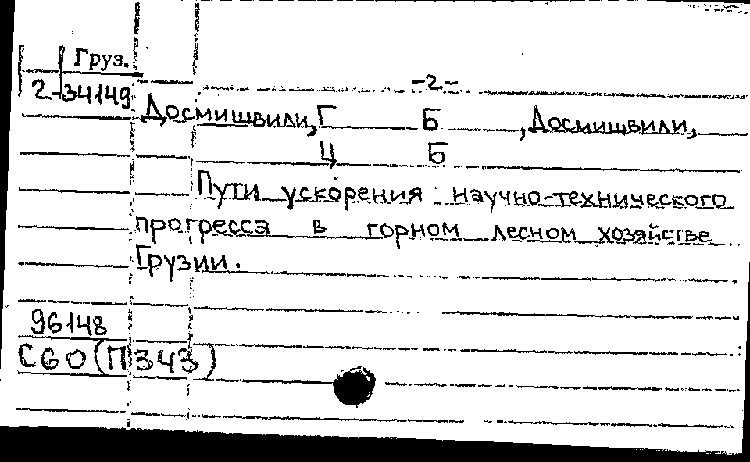 Груз.
-2-
2-34149
Досмишвили, Г Б , Досмишвили,
Ц Б
Пути ускорения научно-технического
прогресса в горном лесном хозяйстве
Грузии.
96148
С60(П343)